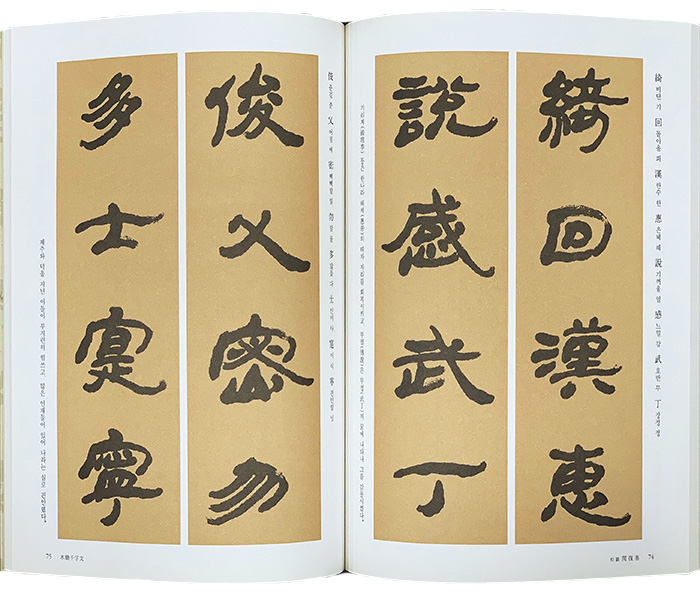 綺 비단 기 回 돌아올 회 漢 한수 한 惠 은혜 혜 說 기꺼울 열 感 느낄 감 武 호반 무 丁 장정 정
綺回漢惠
說感武丁
기리계(綺里季) 등은 한나라 혜제(惠帝)의 태자 자리를 회복시키고, 부열(傅說)은 무정(武丁)의 꿈에 나타나 그를 감동시켰다.
74
俊 준걸 준 乂 어질 예 密 빽빽할 밀 勿 말 물 多 많을 다 士 선비 사 寔 이 식 寧 편안할 녕
俊乂密勿
多士寔寧
재주와 덕을 지닌 이들이 부지런히 힘쓰고, 많은 인재들이 있어 나라는 실로 편안했다.
75 木簡千字文